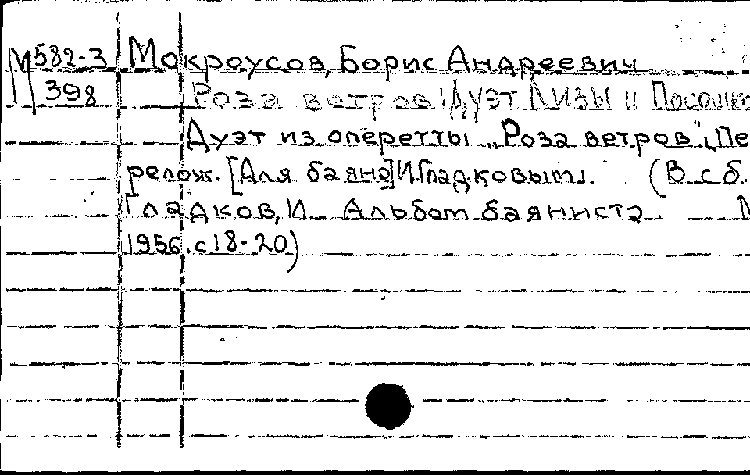 М 582-3 Мокроусов, Борис Андреевич
398 Роза ветров. Дуэт Лизы и
Дуэт из оперетты „Роза ветров". Пе
релож. [Для баяна] И. Гладковым. (В сб.
Гладков, И. Альбом баяниста М
1956. с 18-20)